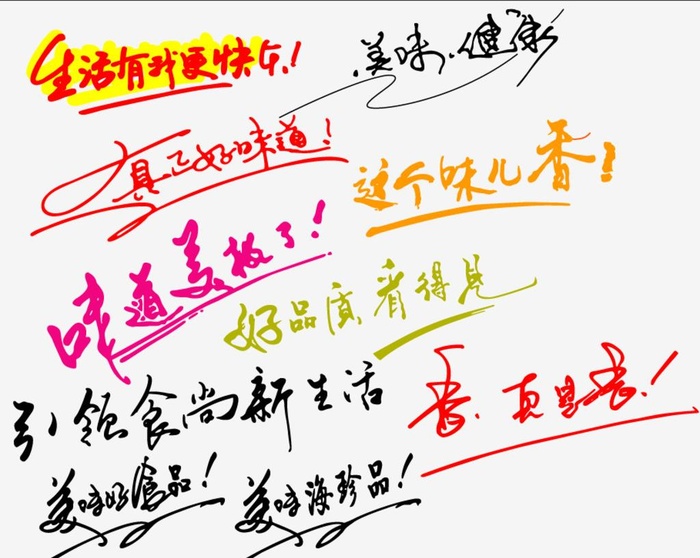 生活有我更快乐!
美味,健康
真正好味道!
这个味儿香!
味道美极了!
好品质,看得见
引领食尚新生活
香,真是香!
美味好食品!
美味海珍品!